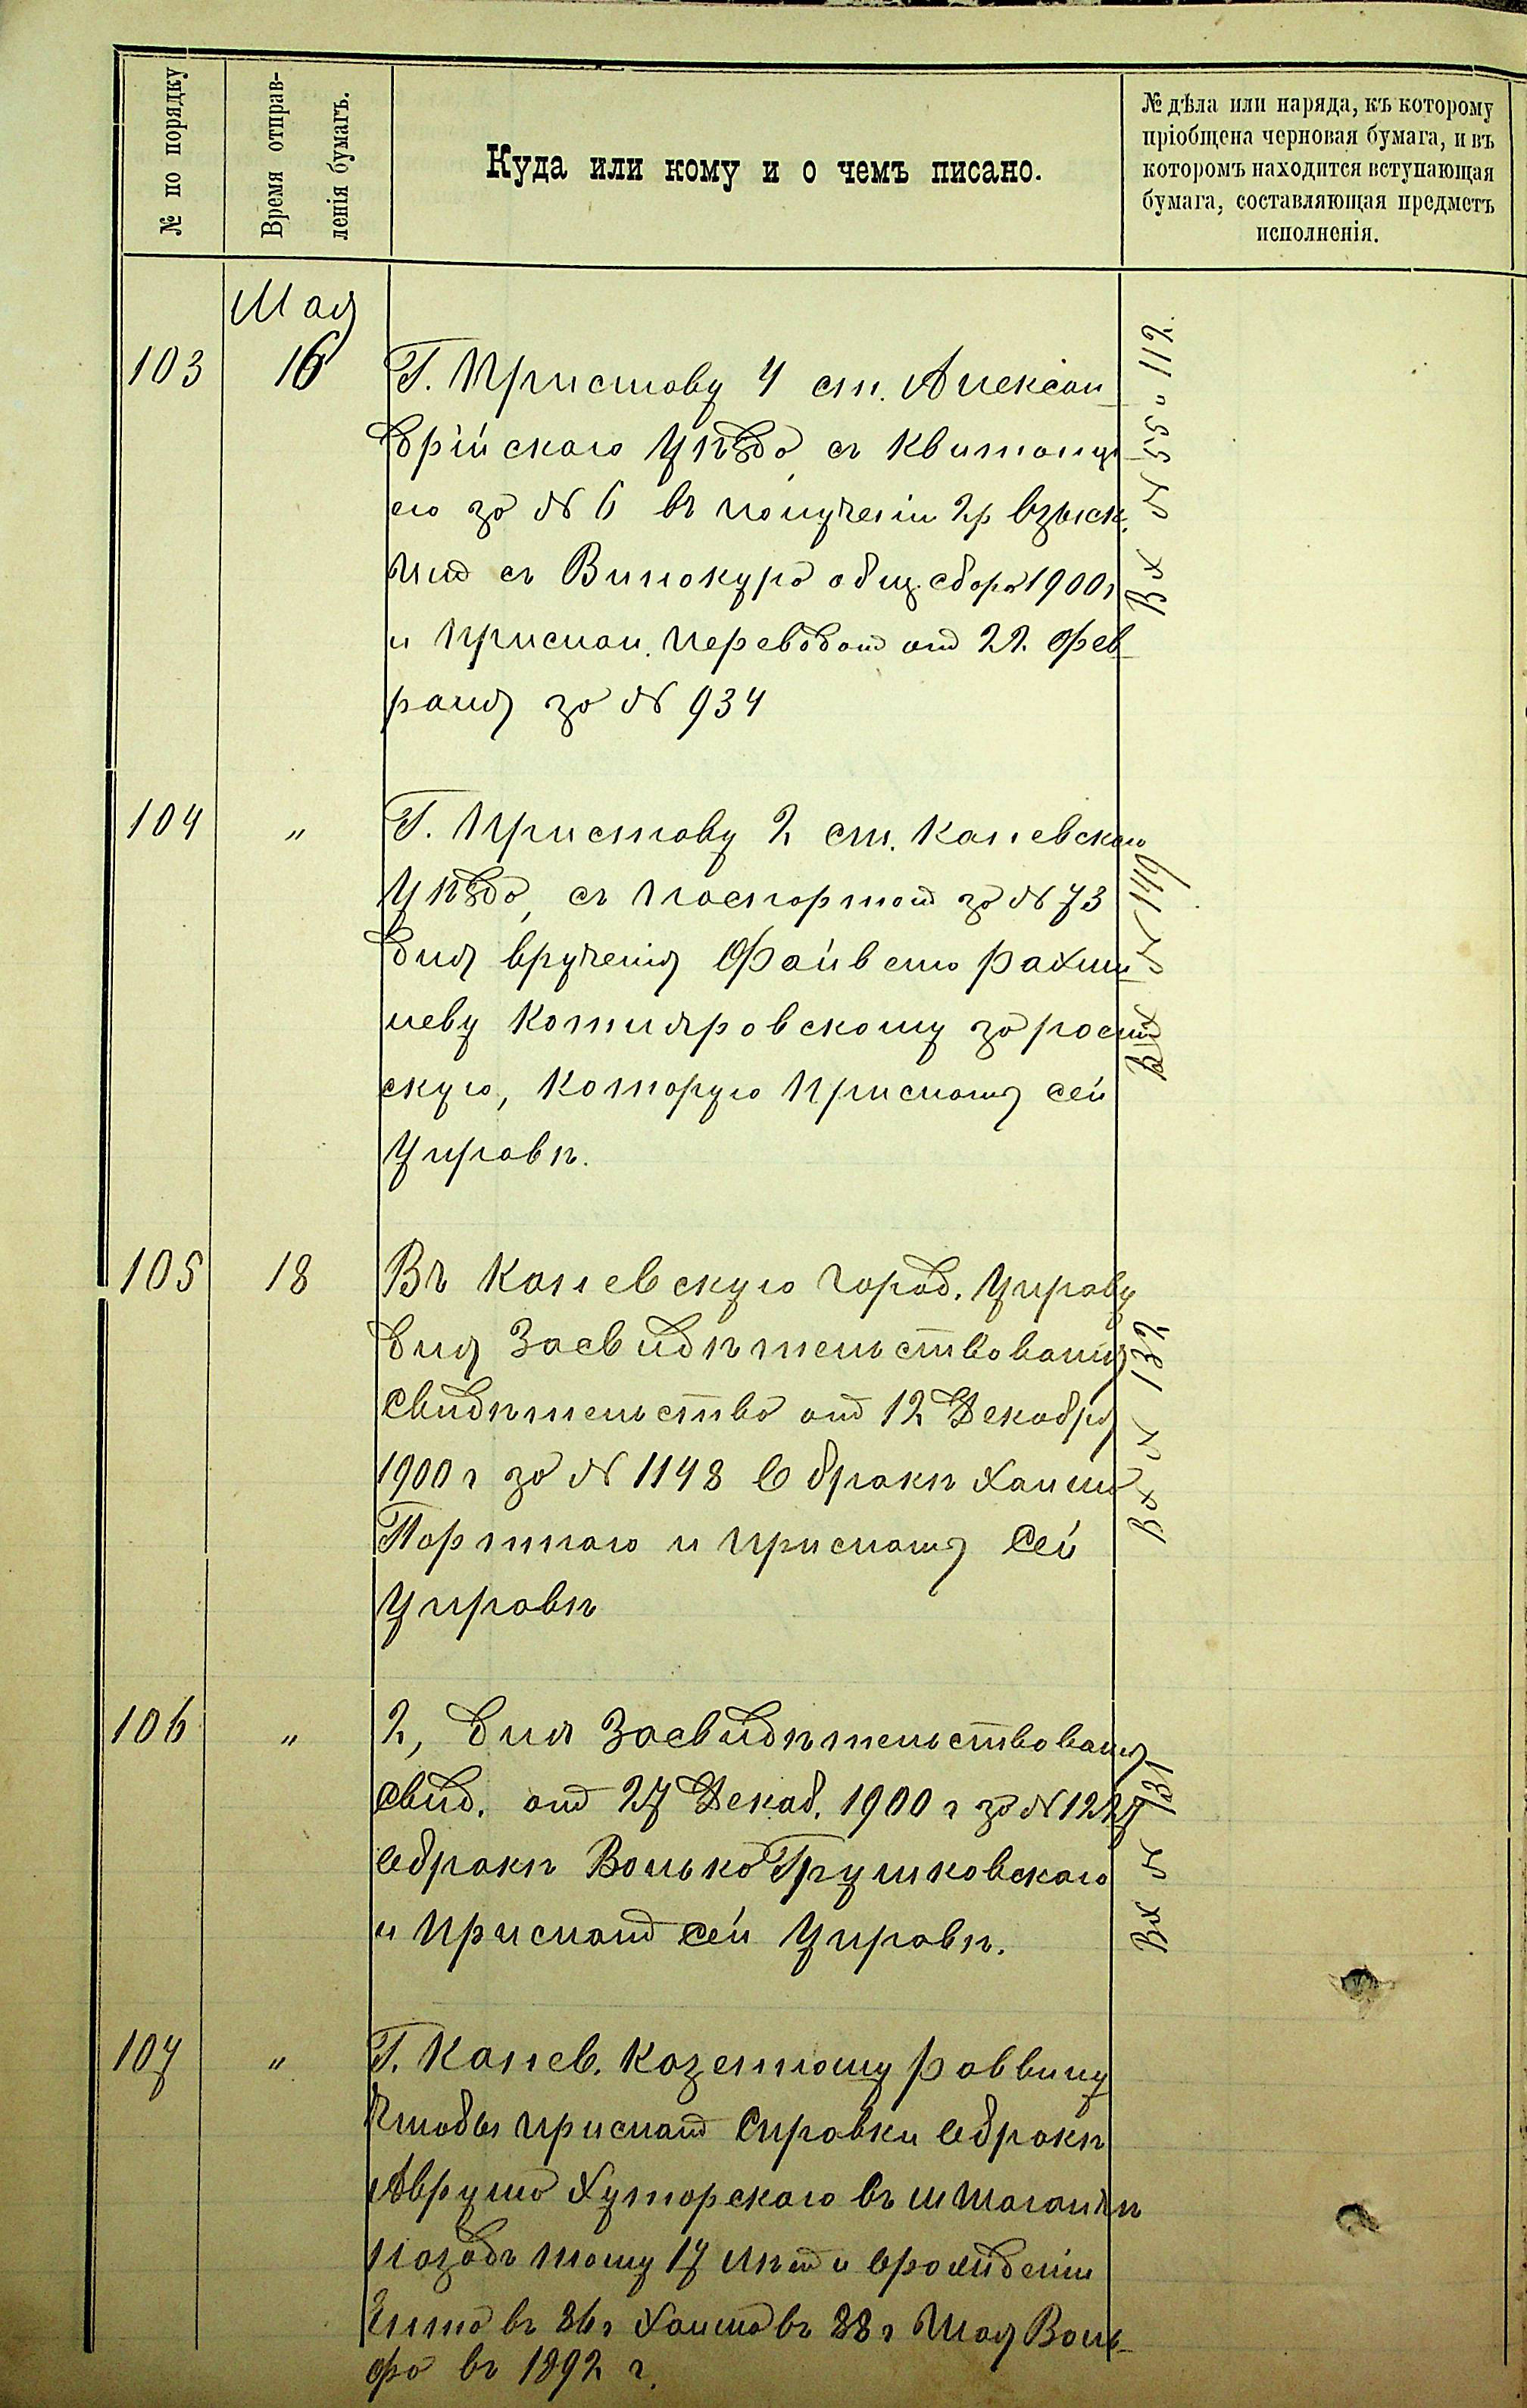 № по порядку
Время отправ-
ленія бумагъ.
Куда или кому и о чемъ писано.
№ дѣла или наряда, къ которому
пріобщена черновая бумага, и въ
которомъ находится вступающая
бумага, составляющая предметъ
исполненія.
Мая
103 16 Г. Приставу 4 ст. Алексан
дрійскаго уѣзда, съ квитанці
ею за № 6 въ полученіи 2р взыск.
имъ съ Винокура общ. сбора 1900 г
и прислан. переводомъ отъ 22. Фев
раля за № 934
Вх № 55 и 112.
104 " Г. Приставу 2 ст. Каневскаго
уѣзда, съ паспортомъ за № 73
для врученія Файвелю Рахми
леву Котляровскому за роспи
скую, которую прислать сей
Управѣ.
Вх № 149
105 18 Въ Каневскую город. Управу
для засвидѣтельствованія
свидѣтельства отъ 12 Декабря
1900 г за № 1148 о бракѣ Хаима
Портнаго и прислать сей
Управѣ
Вх № 132
106 " 2, для засвидѣтельствованія
свид. отъ 27 Декаб. 1900 г за № 1227
о бракѣ Волько Грушковскаго
и прислать сей Управѣ.
Вх № 131
107 " Г. Канев. казенному раввину
чтобы прислать справки о бракѣ
Аврума Хуторскаго въ
назадъ тому 17 лѣтъ и о рожденіи
въ 86 г Хаима въ 88 г Мая Воль
фа въ 1892 г.